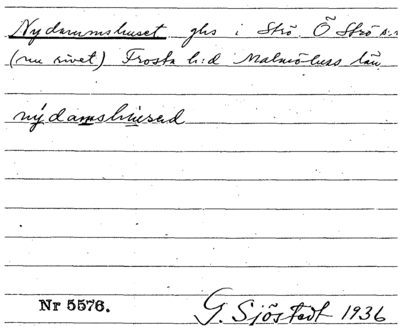 Nydammshuset ghs i Strö Ö Strö s:n
(nu rivet) Frosta h:d Malmöhus län
nýdamshúsed
Nr 5576.
G. Sjöstedt 1936